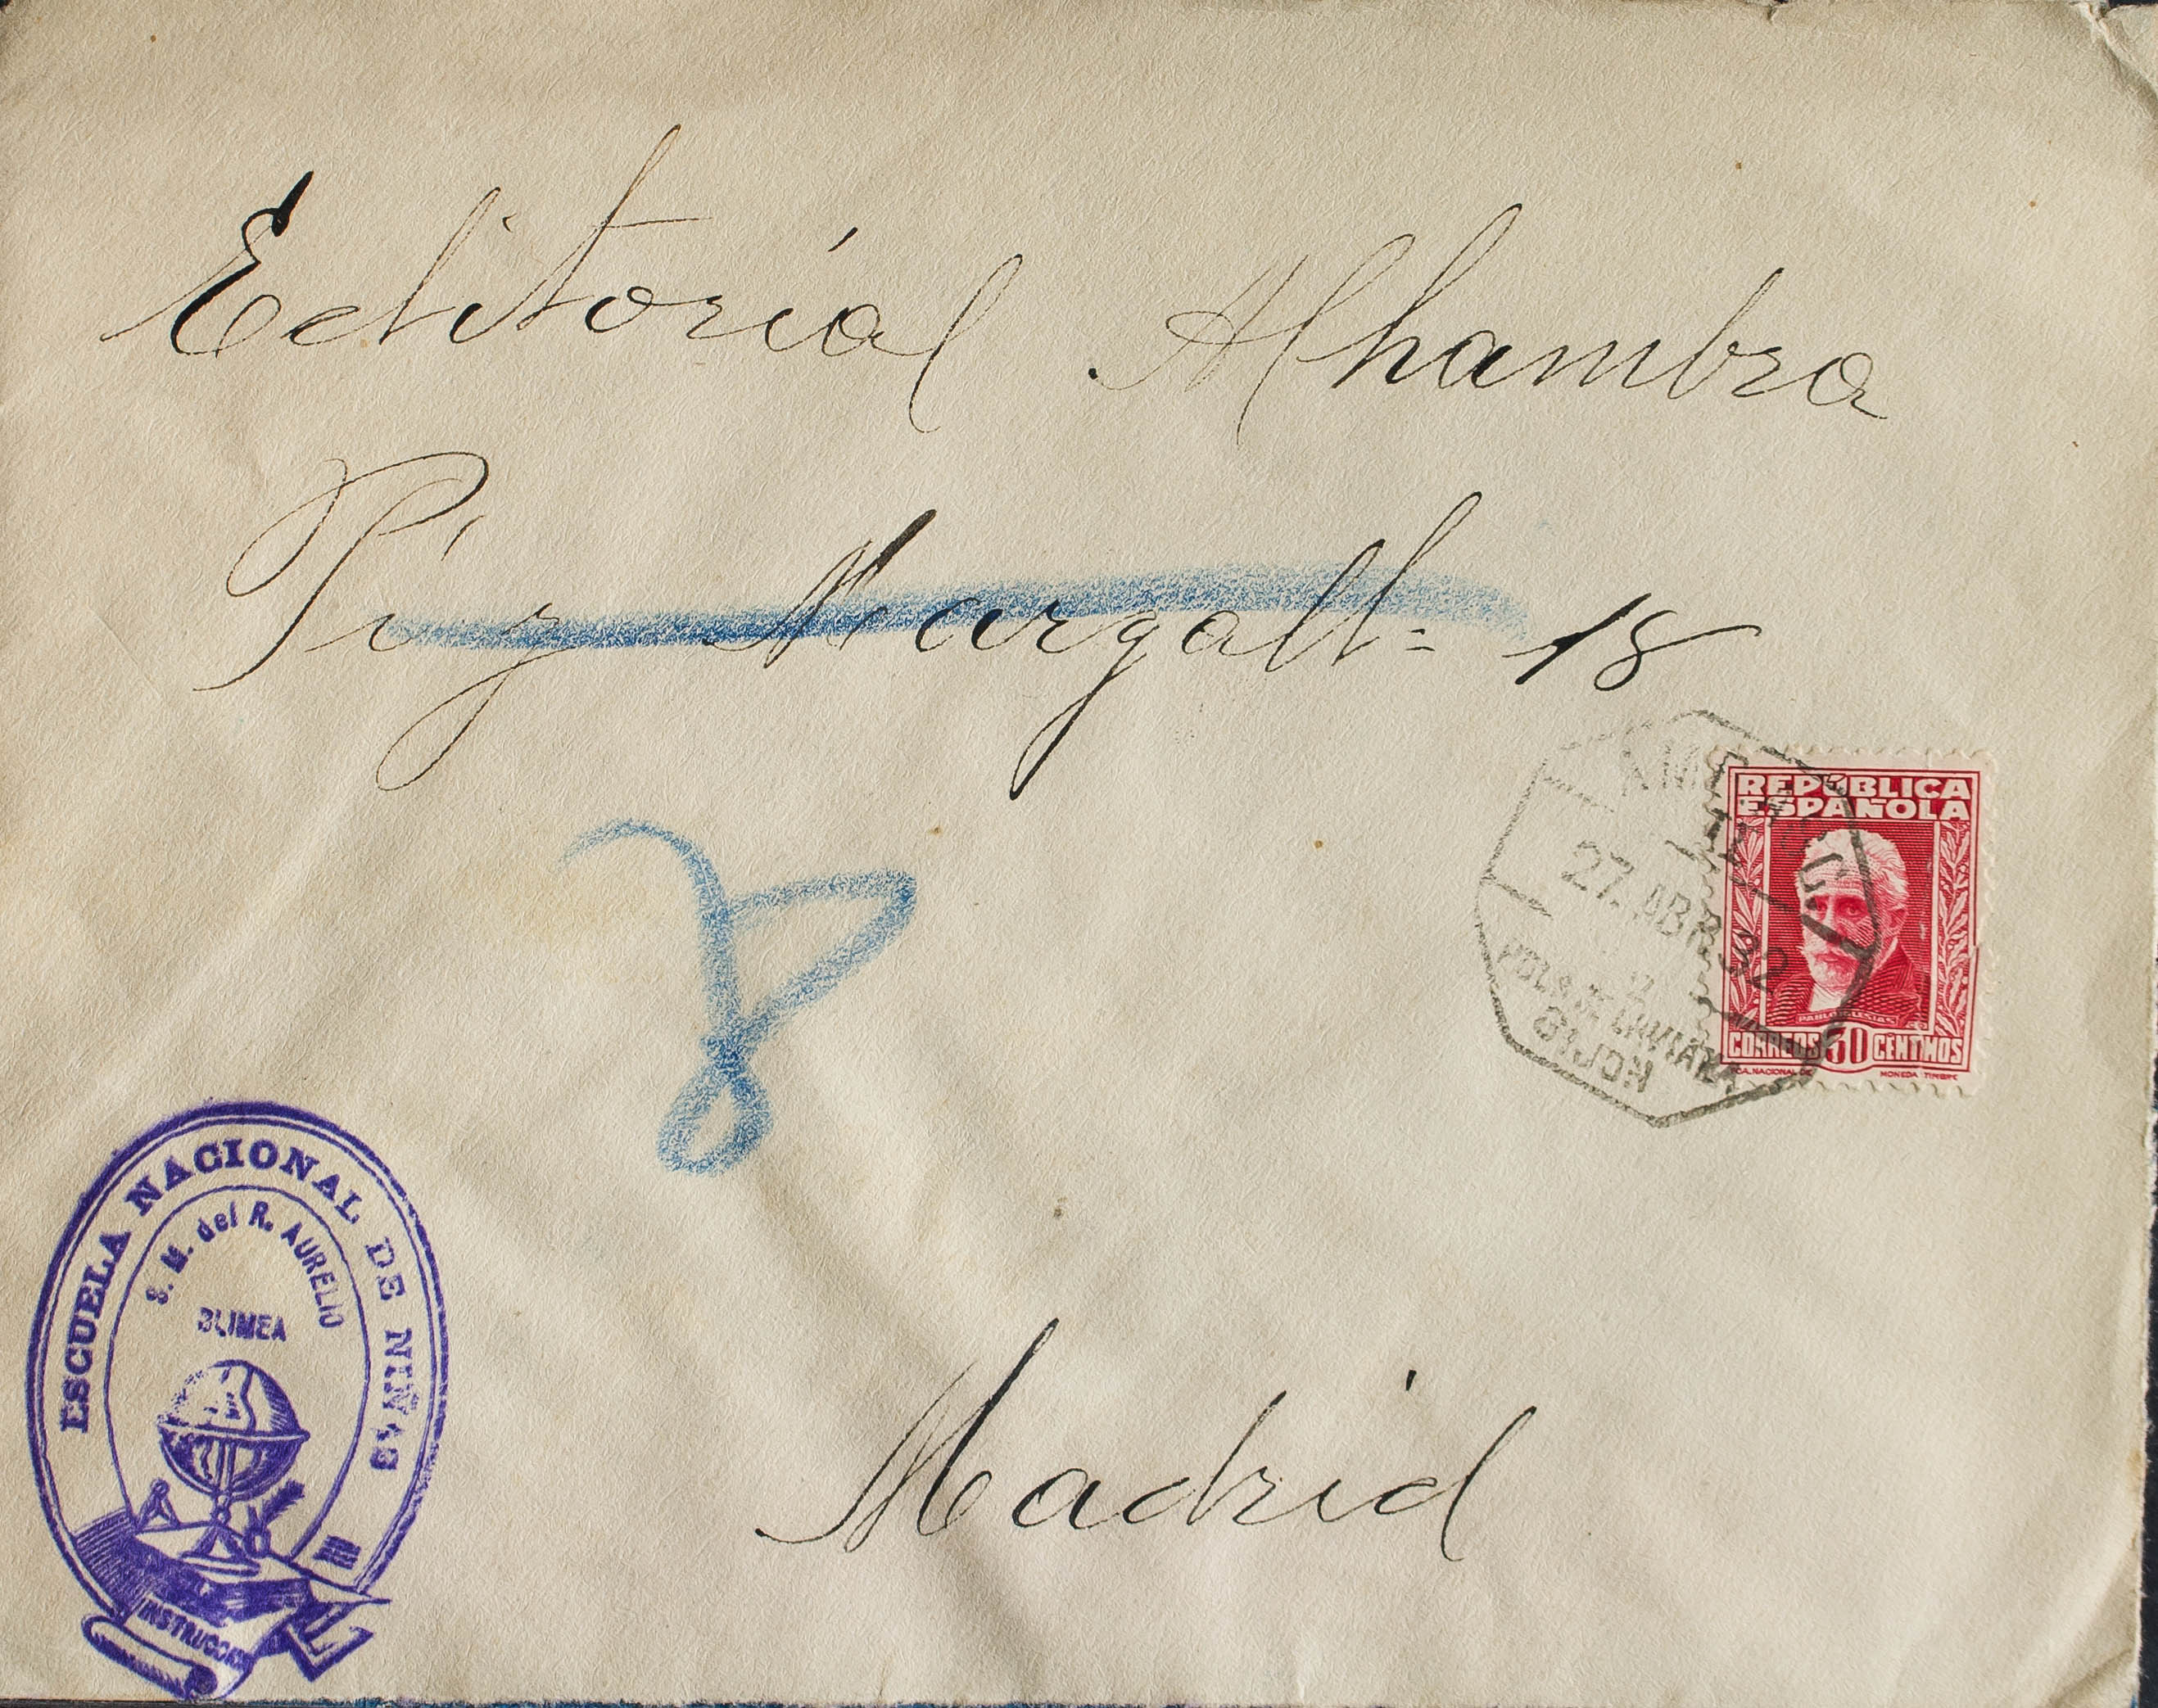 Editorial Alhambra
Pi y Margall = 18
8
Madrid
REPÚBLICA
ESPAÑOLA
PABLO IGLESIAS
CORREOS 30 CENTMOS
MONEDA TIMBRE
27 ABR 32
POLA DE LAVIANA
GIJON
ESCUELA NACIONAL DE NIÑAS
S. M. del R. AURELIO
BLIMEA
INSTRUCCION